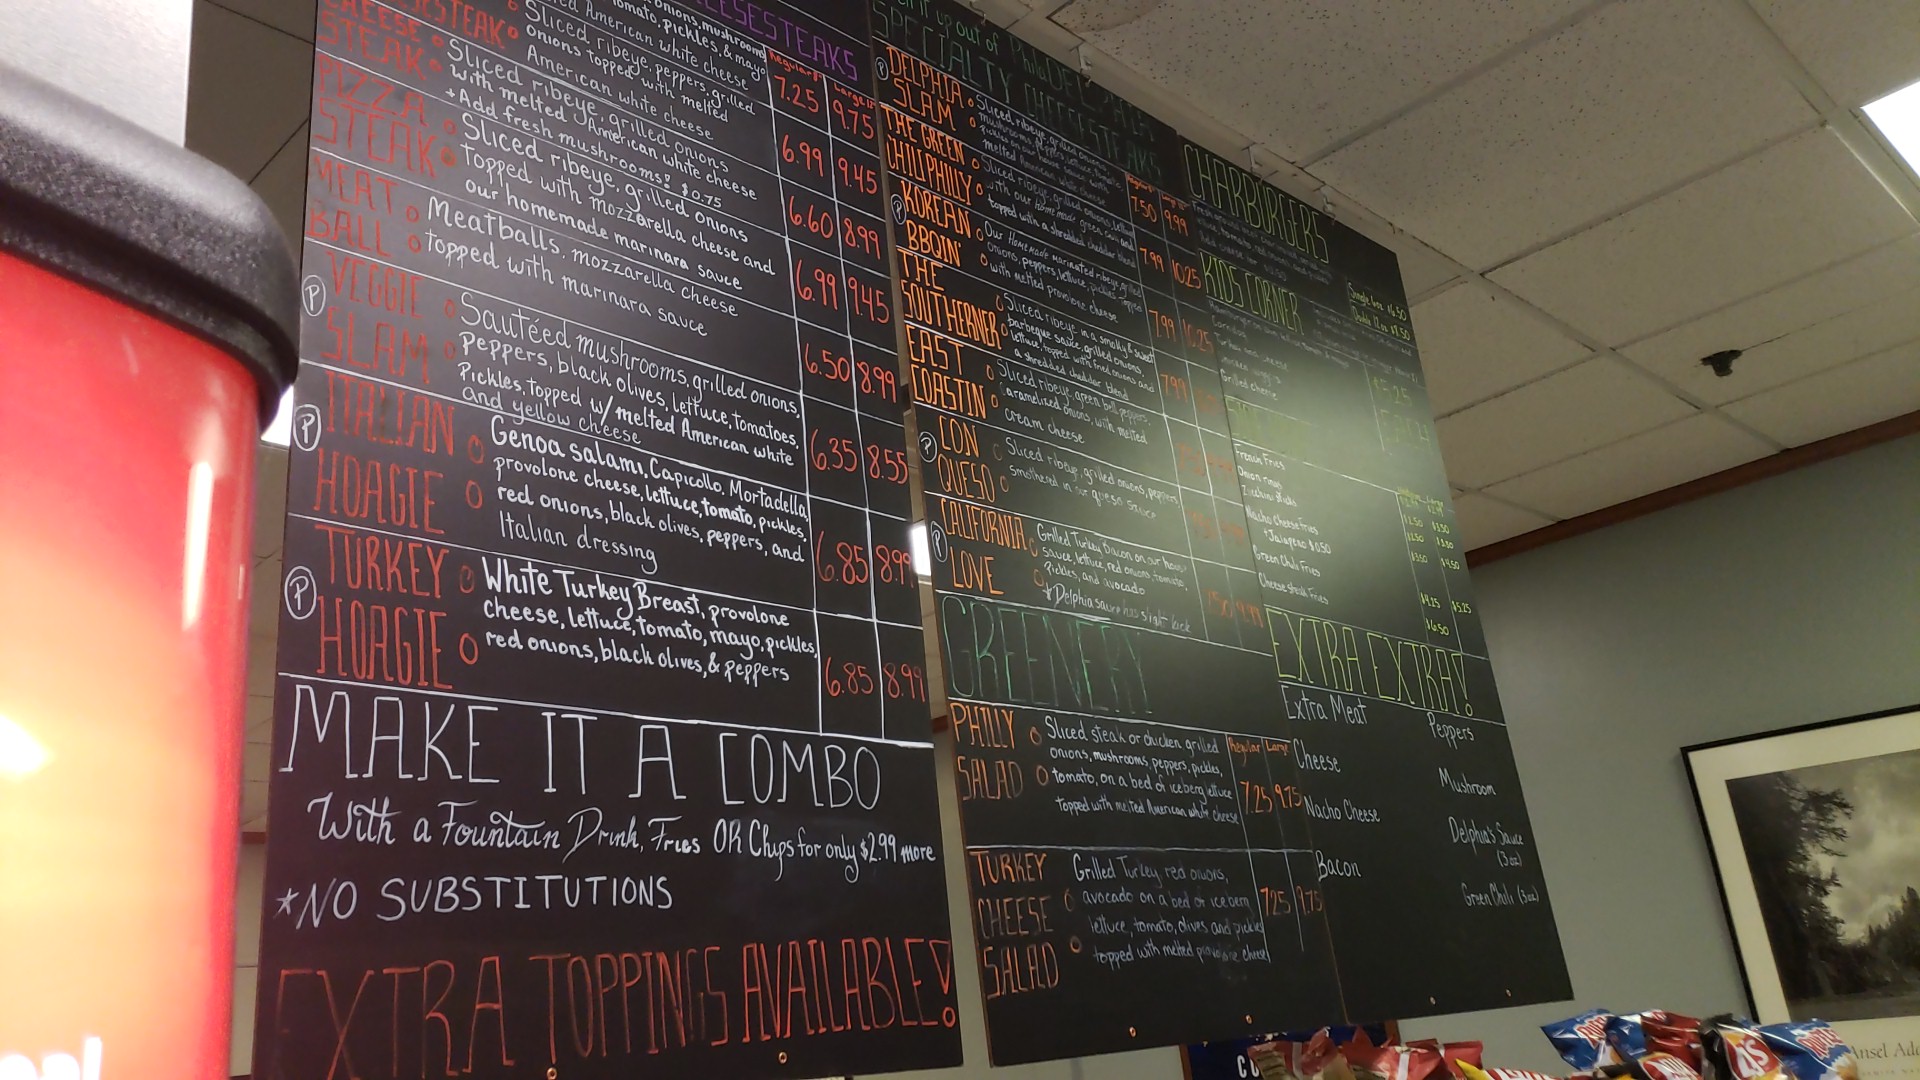 CHEESESTEAKS
onions, mushrooms
tomato, pickles, & mayo
American white cheese
Regular Large
7.25 9.75
CHEESESTEAK
Sliced ribeye, peppers, grilled
onions topped with melted
American white cheese
6.99 9.45
CHEESE
STEAK
Sliced ribeye, grilled onions
with melted American white cheese
*Add fresh mushrooms! $0.75
6.60 8.99
PIZZA
STEAK
Sliced ribeye, grilled onions
topped with mozzarella cheese and
our homemade marinara sauce
6.99 9.45
MEAT
BALL
Meatballs, mozzarella cheese
topped with marinara sauce
6.50 8.99
P
VEGGIE
SLAM
Sautéed mushrooms, grilled onions,
Peppers, black olives, lettuce, tomatoes,
Pickles, topped w/ melted American white
and yellow cheese
6.35 8.55
P
ITALIAN
HOAGIE
Genoa salami, Capicollo, Mortadella,
provolone cheese, lettuce, tomato, pickles,
red onions, black olives, peppers, and
Italian dressing
6.85 8.99
P
TURKEY
HOAGIE
White Turkey Breast, provolone
cheese, lettuce, tomato, mayo, pickles,
red onions, black olives, & peppers
6.85 8.99
MAKE IT A COMBO
With a Fountain Drink, Fries OR Chips for only $2.99 more
*NO SUBSTITUTIONS
EXTRA TOPPINGS AVAILABLE!
it up out of PhilaDELPHIA'S
SPECIALTY CHEESESTEAKS
Regular Large
P
DELPHIA
SLAM
Sliced ribeye, grilled onions,
mushrooms, peppers, lettuce, tomato,
pickles on our house sauce with
melted American white cheese
7.50 9.99
THE GREEN
CHILIPHILLY
Sliced ribeye, grilled onions, lettuce
with our home made green chili and
topped with a shredded cheddar blend
7.99 10.25
P
KOREAN
BBQIN'
Our Homemade marinated ribeye, grilled
onions, peppers, lettuce, pickles, topped
with melted provolone cheese
7.99 10.25
THE
SOUTHERNER
Sliced ribeye in a smoky & sweet
barbeque sauce, grilled onions,
lettuce, topped with fried onions and
a shredded cheddar blend
7.99
EAST
COASTIN
Sliced ribeye, green bell peppers,
Caramelized onions, with melted
cream cheese
P
CON
QUESO
Sliced ribeye, grilled onions, peppers
smothered in our queso sauce
P
CALIFORNIA
LOVE
Grilled Turkey Bacon on our house
sauce, lettuce, red onions, tomato,
Pickles, and avocado
*Delphia sauce has slight kick
7.50 9.99
GREENERY
Regular Large
PHILLY
SALAD
Sliced steak or chicken, grilled
onions, mushrooms, peppers, pickles,
tomato, on a bed of iceberg lettuce
topped with melted American white cheese
7.25 9.75
TURKEY
CHEESE
SALAD
Grilled Turkey, red onions,
avocado on a bed of iceberg
lettuce, tomato, olives and pickles
topped with melted provolone cheese
7.25 9.75
CHARBURGERS
Single 6oz $6.50
Double 12oz $8.50
KIDS CORNER
Grilled cheese
$5.25
EACH
French Fries
Onion rings
Zucchini Sticks
Nacho Cheese Fries
+Jalapeno $0.50
Green Chili Fries
Cheesesteak Fries
$2.50 $3.50
$3.50 $4.50
$4.25 $5.25
$6.50
EXTRA EXTRA!
Extra Meat
Cheese
Nacho Cheese
Bacon
Peppers
Mushroom
Delphia's Sauce
(3oz)
Green Chili (3oz)
Ansel Ada